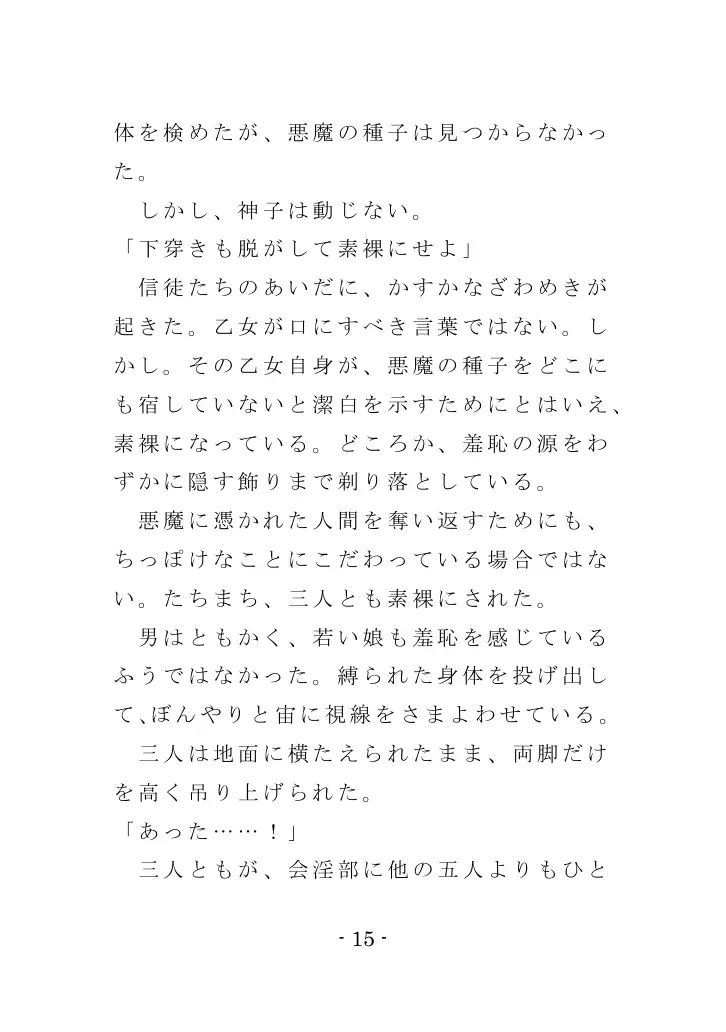 体を検めたが、悪魔の種子は見つからなかっ
た。
　しかし、神子は動じない。
「下穿きも脱がして素裸にせよ」
　信徒たちのあいだに、かすかなざわめきが
起きた。乙女が口にすべき言葉ではない。し
かし。その乙女自身が、悪魔の種子をどこに
も宿していないと潔白を示すためにとはいえ、
素裸になっている。どころか、羞恥の源をわ
ずかに隠す飾りまで剃り落としている。
　悪魔に憑かれた人間を奪い返すためにも、
ちっぽけなことにこだわっている場合ではな
い。たちまち、三人とも素裸にされた。
　男はともかく、若い娘も羞恥を感じている
ふうではなかった。縛られた身体を投げ出し
て、ぼんやりと宙に視線をさまよわせている。
　三人は地面に横たえられたまま、両脚だけ
を高く吊り上げられた。
「あった……！」
　三人ともが、会淫部に他の五人よりもひと
- 15 -